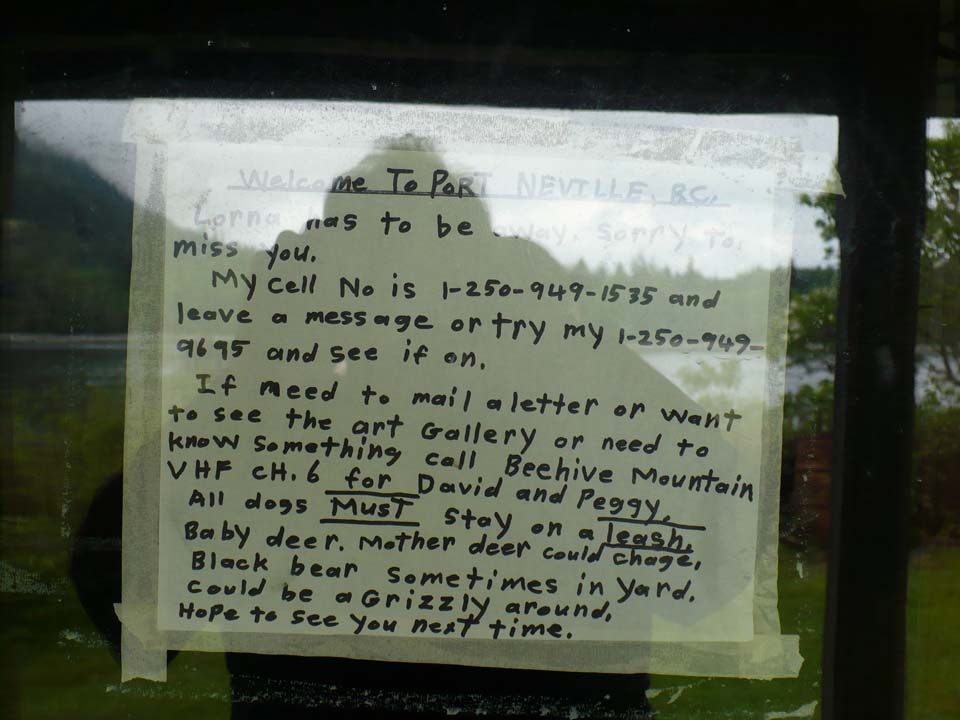 Welcome To PORT NEVILLE, BC.
Lorna has to be away. Sorry to
miss you.
My cell No is 1-250-949-1535 and
leave a message or try my 1-250-949-
9695 and see if on.
If need to mail a letter or want
to see the art Gallery or need to
know something call Beehive Mountain
VHF CH. 6 for David and Peggy.
All dogs MusT stay on a leash.
Baby deer. Mother deer could chage.
Black bear sometimes in yard.
Could be a Grizzly around.
Hope to see you next time.